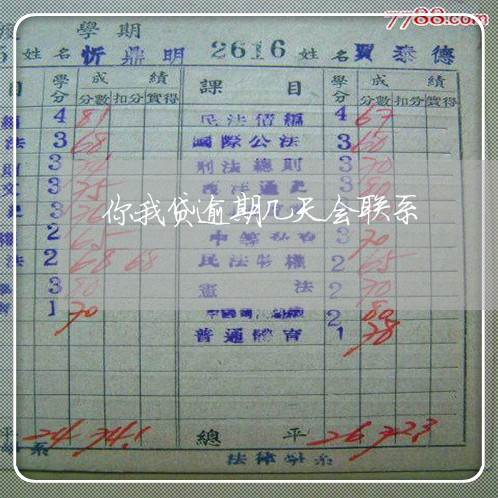 7788.com
學期
姓名 忻鼎明 2616 姓名 賈泰德
目 學分 成績 課目 學分 成績
分數 扣分 實得 分數 扣分 實得
4 81 民法債編 4 67
法 3 68 國際公法 3 60
3 刑法總則 3 70
3 75 政法通史 3 80
你我贷逾期几天会联系
2 65 3 70
法 2 68 68 民法物權 2 65
3 80 憲法 2 70
1 70 2 80
普通體育 1 78
平 24 74.1 總平 26 72.3
系 法律學系